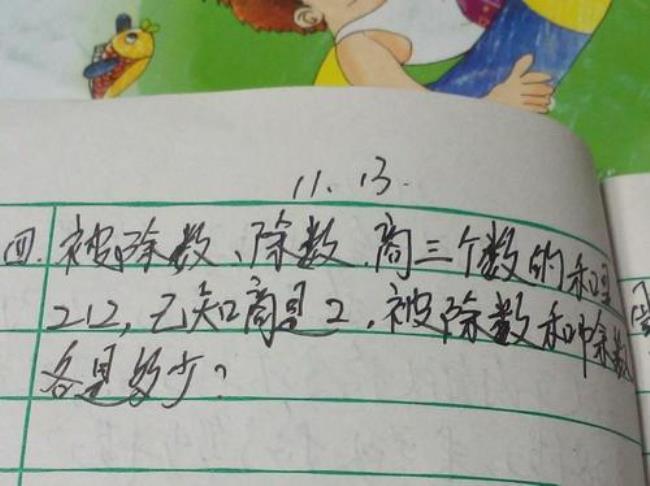 11.13.
四.被除数、除数、商三个数的和是
212,已知商是2,被除数和除数
各是多少?